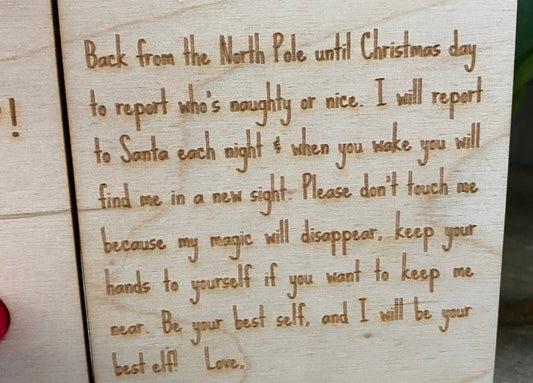 !
Back from the North Pole until Christmas day
to report who's naughty or nice. I will report
to Santa each night & when you wake you will
find me in a new sight. Please don't touch me
because my magic will disappear, keep your
hands to yourself if you want to keep me
near. Be your best self, and I will be your
best elf! Love,